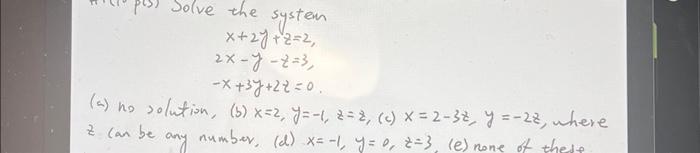 pts) Solve the system
x+2y+z=2,
2x-y-z=3,
-x+3y+2z=0.
(a) no solution, (b) x=2, y=-1, z=2, (c) x=2-3z, y=-2z, where
z can be any number, (d) x=-1, y=0, z=3, (e) none of these